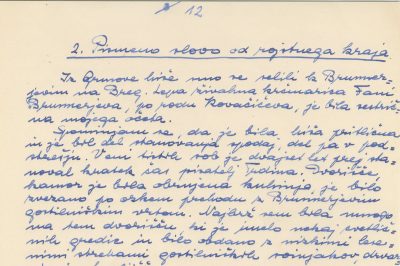 12
2. Pismeno slovo od rojstnega kraja
Iz Grmove hiše smo se selili k Brunner-
jevim na Breg. Lepa živahna krčmarica Fani
Brunnerjeva, po rodu Kovačičeva, je bila sestrič-
na mojega očeta.
Spominjam se, da je bila hiša pritlična
in je bil del stanovanja spodaj, del pa v pod-
strešju. V eni tistih sob je dvajset let prej sta-
noval kratek čas pisatelj Trdina. Dvorišče,
kamor je bila obrnjena kuhinja, je bilo
zvezano po ozkem prehodu z Brunnerjevim
gostilniškim vrtom. Najbrž sem bila mnogo
na tem dvorišču, ki je imelo nekaj cvetlič-
nih gredic in bilo obdano z nizkimi lese-
nimi strehami gostilniških svinjakov, drvar-